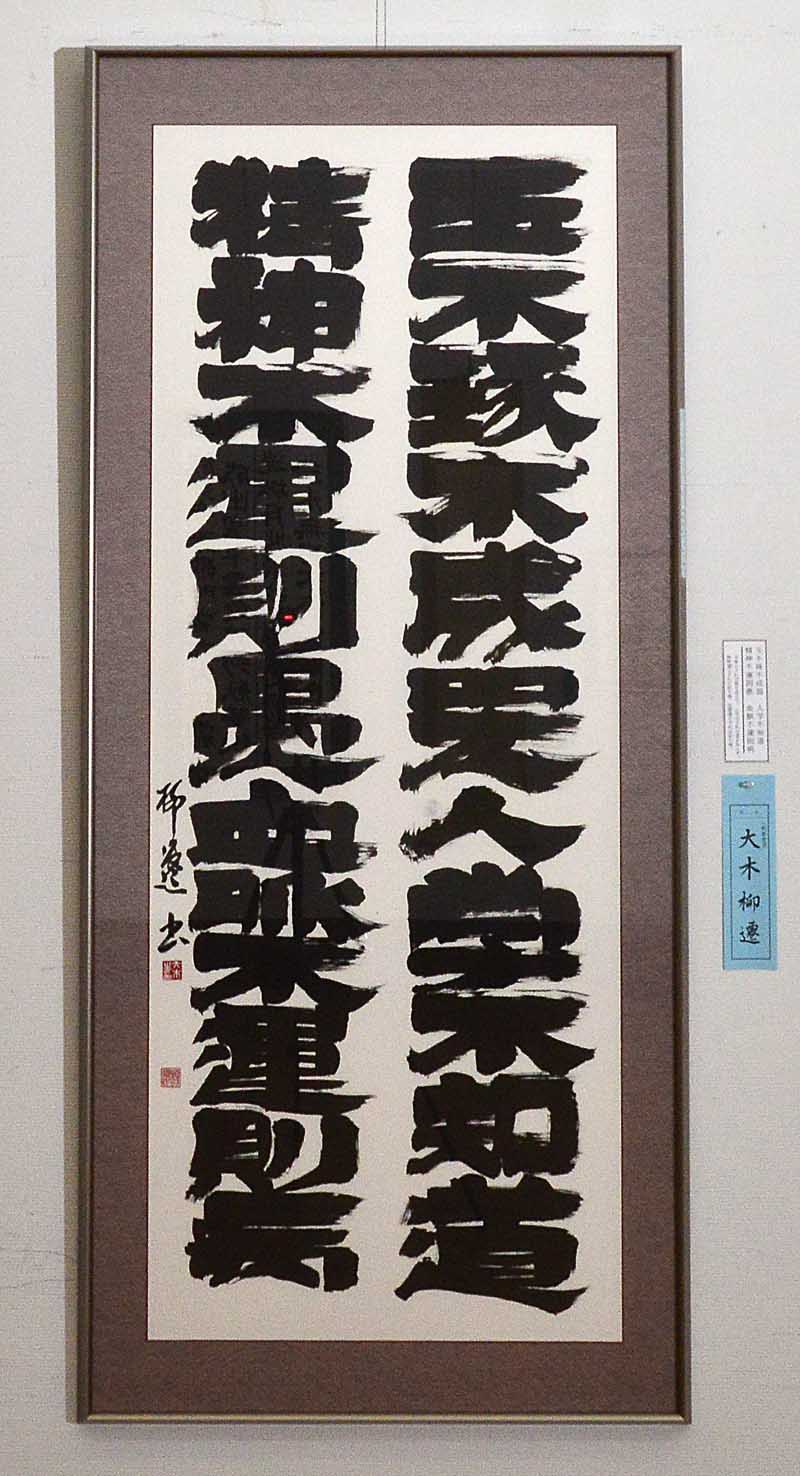 玉不琢不成器人学不知道
精神不運則愚血脉不運則病
柳遷書
玉不琢不成器 人学不知道
精神不運則愚 血脉不運則病
大木柳遷